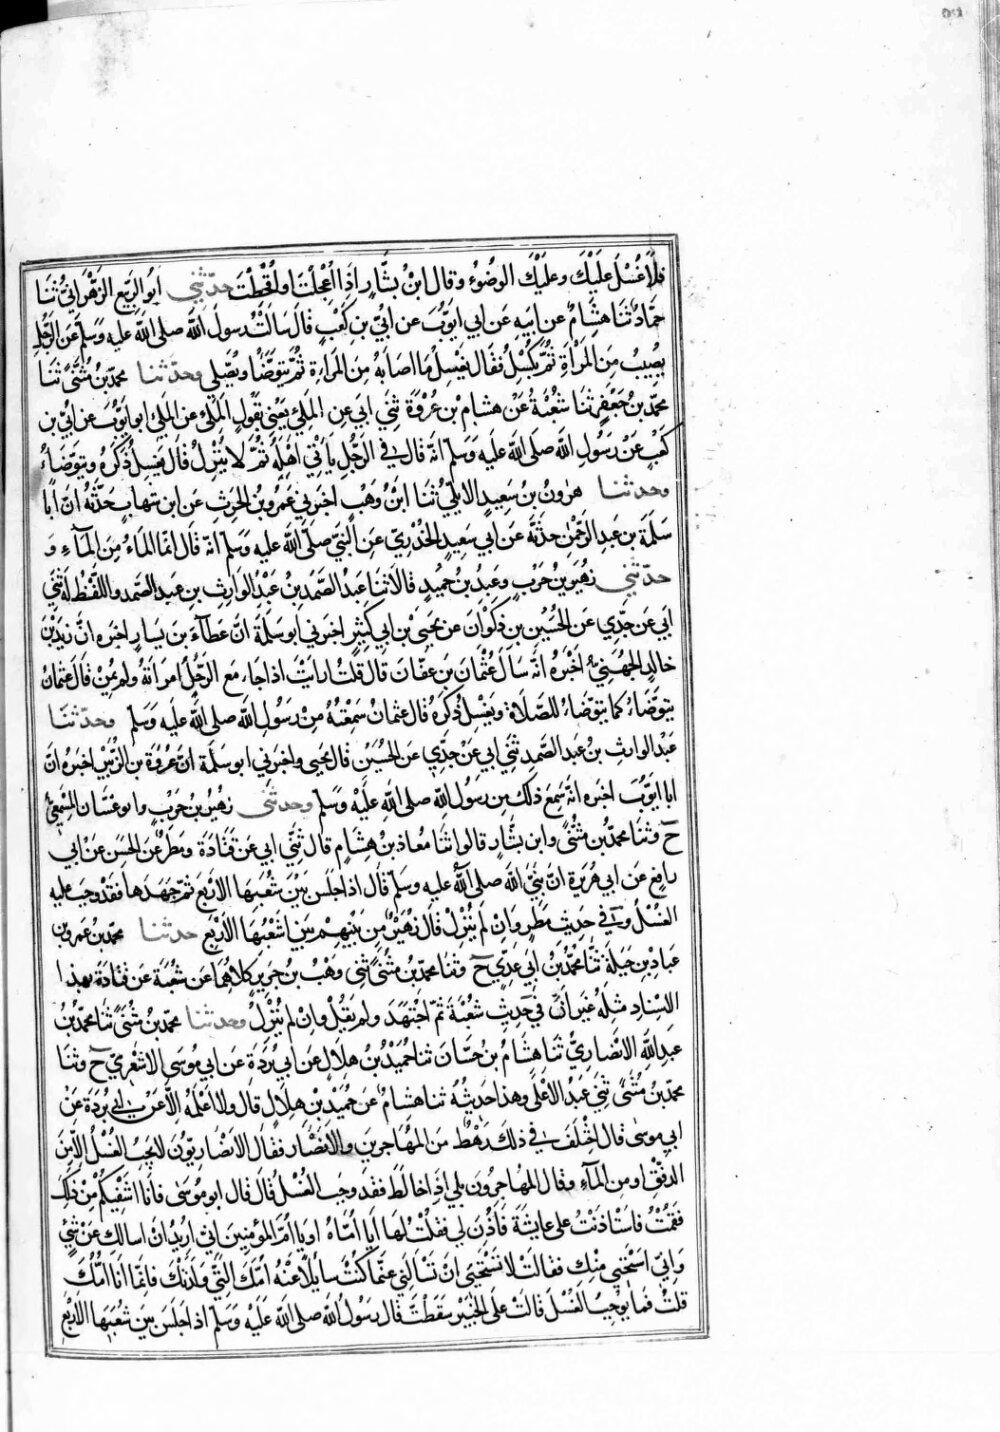 فلا غسل عليك وعليك الوضوء وقال ابن بشار اذا اعجلت او اقحطت حدثني ابو الربيع الزهراني ثنا
حماد ثنا هشام عن ابيه عن ابي ايوب عن ابي بن كعب قال سالت رسول الله صلى الله عليه وسلم عن الرجل
يصيب من المرأة ثم يكسل فقال يغسل ما اصابه من المراة ثم يتوضا ويصلي وحدثنا محمد بن مثنى ثنا
محمد بن جعفر ثنا شعبة عن هشام بن عروة ثني ابي عن الملي يعني بقول الملي عن الملي ابو ايوب عن ابي بن
كعب عن رسول الله صلى الله عليه وسلم انه قال في الرجل ياتي اهله ثم لا ينزل قال يغسل ذكره ويتوضاء
وحدثنا هرون بن سعيد الايلي ثنا ابن وهب اخبرني عمرو بن الحرث عن ابن شهاب حدثه ان ابا
سلمة بن عبد الرحمن حدثه عن ابي سعيد الخدري عن النبي صلى الله عليه وسلم انه قال انما الماء من الماء و
حدثني زهير بن حرب وعبد بن حميد قالا ثنا عبد الصمد بن عبد الوارث بن عبد الصمد واللفظ له ثني
ابي عن جدي عن الحسين بن ذكوان عن يحيى بن ابي كثير اخبرني ابو سلمة ان عطاء بن يسار اخبره ان زيد بن
خالد الجهني اخبره انه سال عثمان بن عفان قال قلت ارايت اذا جامع الرجل امراته ولم يمن قال عثمان
يتوضاء كما يتوضاء للصلاة ويغسل ذكره قال عثمان سمعته من رسول الله صلى الله عليه وسلم وحدثنا
عبد الوارث بن عبد الصمد ثني ابي عن جدي عن الحسين قال يحيى واخبرني ابو سلمة ان عروة بن الزبير اخبره ان
ابا ايوب اخبره انه سمع ذلك من رسول الله صلى الله عليه وسلم وحدثني زهير بن حرب وابو غسان المسمعي
ح وثنا محمد بن مثنى وابن بشار قالوا ثنا معاذ بن هشام قال ثني ابي عن قتادة ومطر عن الحسن عن ابي
رافع عن ابي هريرة ان نبي الله صلى الله عليه وسلم قال اذا جلس بين شعبها الاربع ثم جهدها فقد وجب عليه
الغسل وفي حديث مطر وان لم ينزل قال زهير من بينهم بين اشعبها الاربع حدثنا محمد بن عمرو بن
عباد بن جبلة ثنا محمد بن ابي عدي ح وثنا محمد بن مثنى ثني وهب بن جرير كلاهما عن شعبة عن قتادة بهذا
الاسناد مثله غير ان في حديث شعبة ثم اجتهد ولم يقل وان لم ينزل وحدثنا محمد بن مثنى ثنا محمد بن
عبد الله الانصاري ثنا هشام بن حسان ثنا حميد بن هلال عن ابي بردة عن ابي موسى الاشعري ح وثنا
محمد بن مثنى ثني عبد الاعلى وهذا حديثه ثنا هشام عن حميد بن هلال قال ولا اعلمه الا عن ابي بردة عن
ابي موسى قال اختلف في ذلك رهط من المهاجرين والانصار فقال الانصاريون لا يجب الغسل الا من
الدفق او من الماء وقال المهاجرون بلى اذا خالط فقد وجب الغسل قال قال ابو موسى فانا اشفيكم من ذلك
فقمت فاستاذنت على عايشة فاذن لي فقلت لها يا اماه او يا ام المؤمنين اني اريد ان اسالك عن شئ
واني استحيي منك فقالت لا تستحيي ان تسالني عما كنت سايلا عنه امك التي ولدتك فانما انا امك
قلت فما يوجب الغسل قالت على الخبير سقطت قال رسول الله صلى الله عليه وسلم اذا جلس بين شعبها الاربع